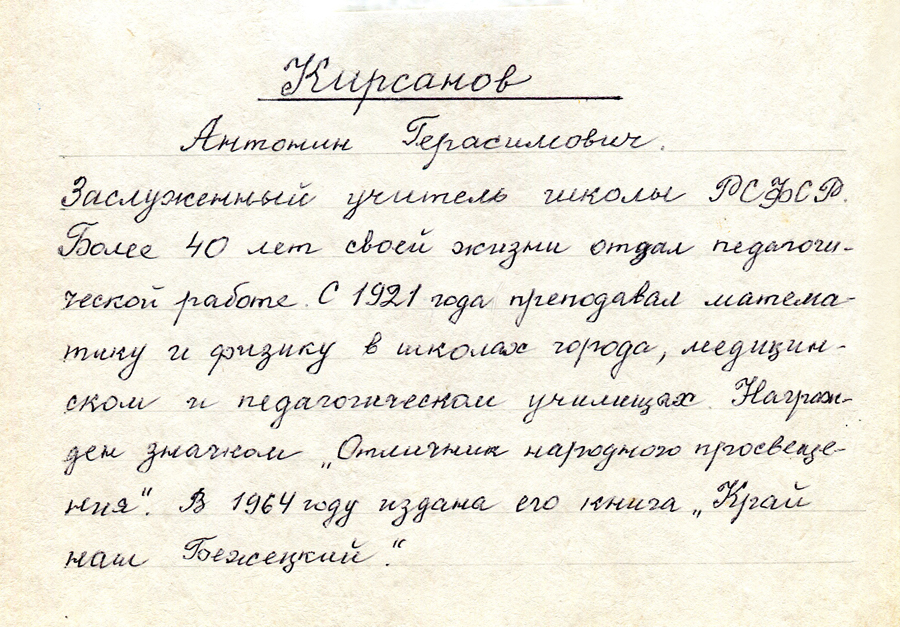 Кирсанов
Антонин Герасимович.
Заслуженный учитель школы РСФСР.
Более 40 лет своей жизни отдал педагоги-
ческой работе. С 1921 года преподавал матема-
тику и физику в школах города, медицин-
ском и педагогическом училищах. Награж-
ден значком „Отличник народного просвеще-
ния". В 1964 году издана его книга „Край
наш Бежецкий".